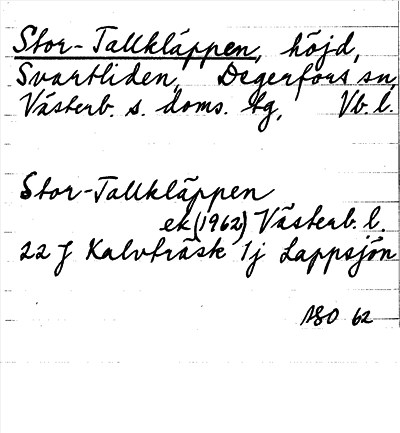 Stor-Tallkläppen, höjd,
Svartliden, Degerfors sn,
Västerb. s. doms. tg, Vb. l.
Stor-Tallkläppen
ek (1962) Västerb. l.
22 J Kalvträsk 1j Lappsjön
ISO 62